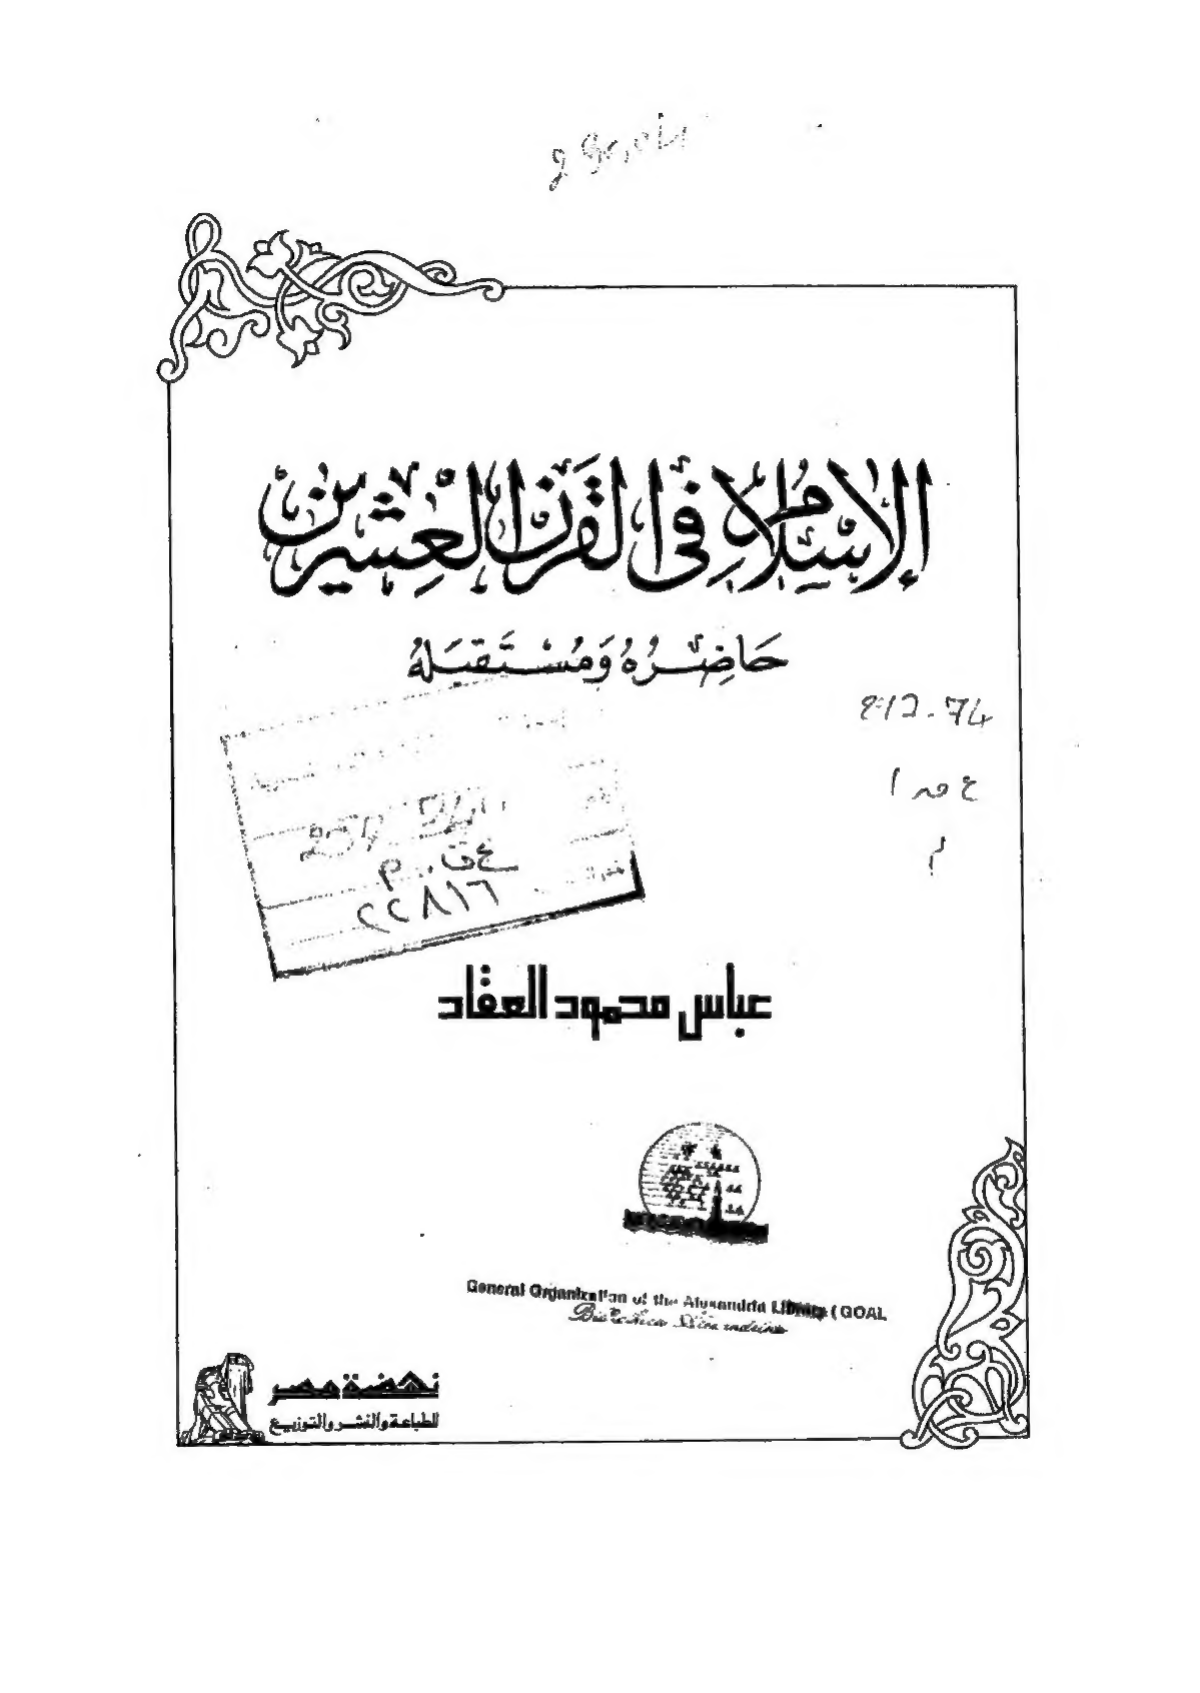 الإسلام في القرن العشرين
حَاضِرُهُ وَمُسْتَقبَلهُ
ع ق . م
٢٢٨١٦
عباس محمود العقاد
General Organization of the Alexandria Library (GOAL
Bibliotheca Alexandrina
نهضة مصر
للطباعة والنشر والتوزيع